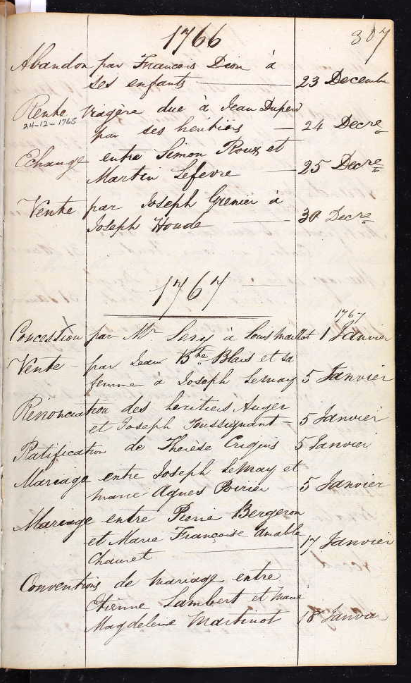 1766 307
Abandon par Francois Dion à
ses enfants 23 Decembr
Rente viagère due à Jean
24-12-1765
par ses heritiers 24 Decre
Echange entre Simon Roux et
Martin Lefevre 25 Decre
Vente par Joseph Grenier à
Joseph Houde 30 Decre
1767
1767
Concession par Mr à Louis Maillot 1 Janvier
Vente par Jean Bte Blais et sa
femme à Joseph Lemay 5 Janvier
Renonciation des heritiers Auger
et Joseph Toussignant 5 Janvier
Ratification de Thérèse 5 Janvier
Mariage entre Joseph Lemay et
marie Agnes Poirier 5 Janvier
Mariage entre Pierre Bergeron
et Marie Francoise Amable
Chauret 17 Janvier
Conventions de mariage entre
Etienne Lambert et Marie
Magdeleine Martinot 18 Janvier